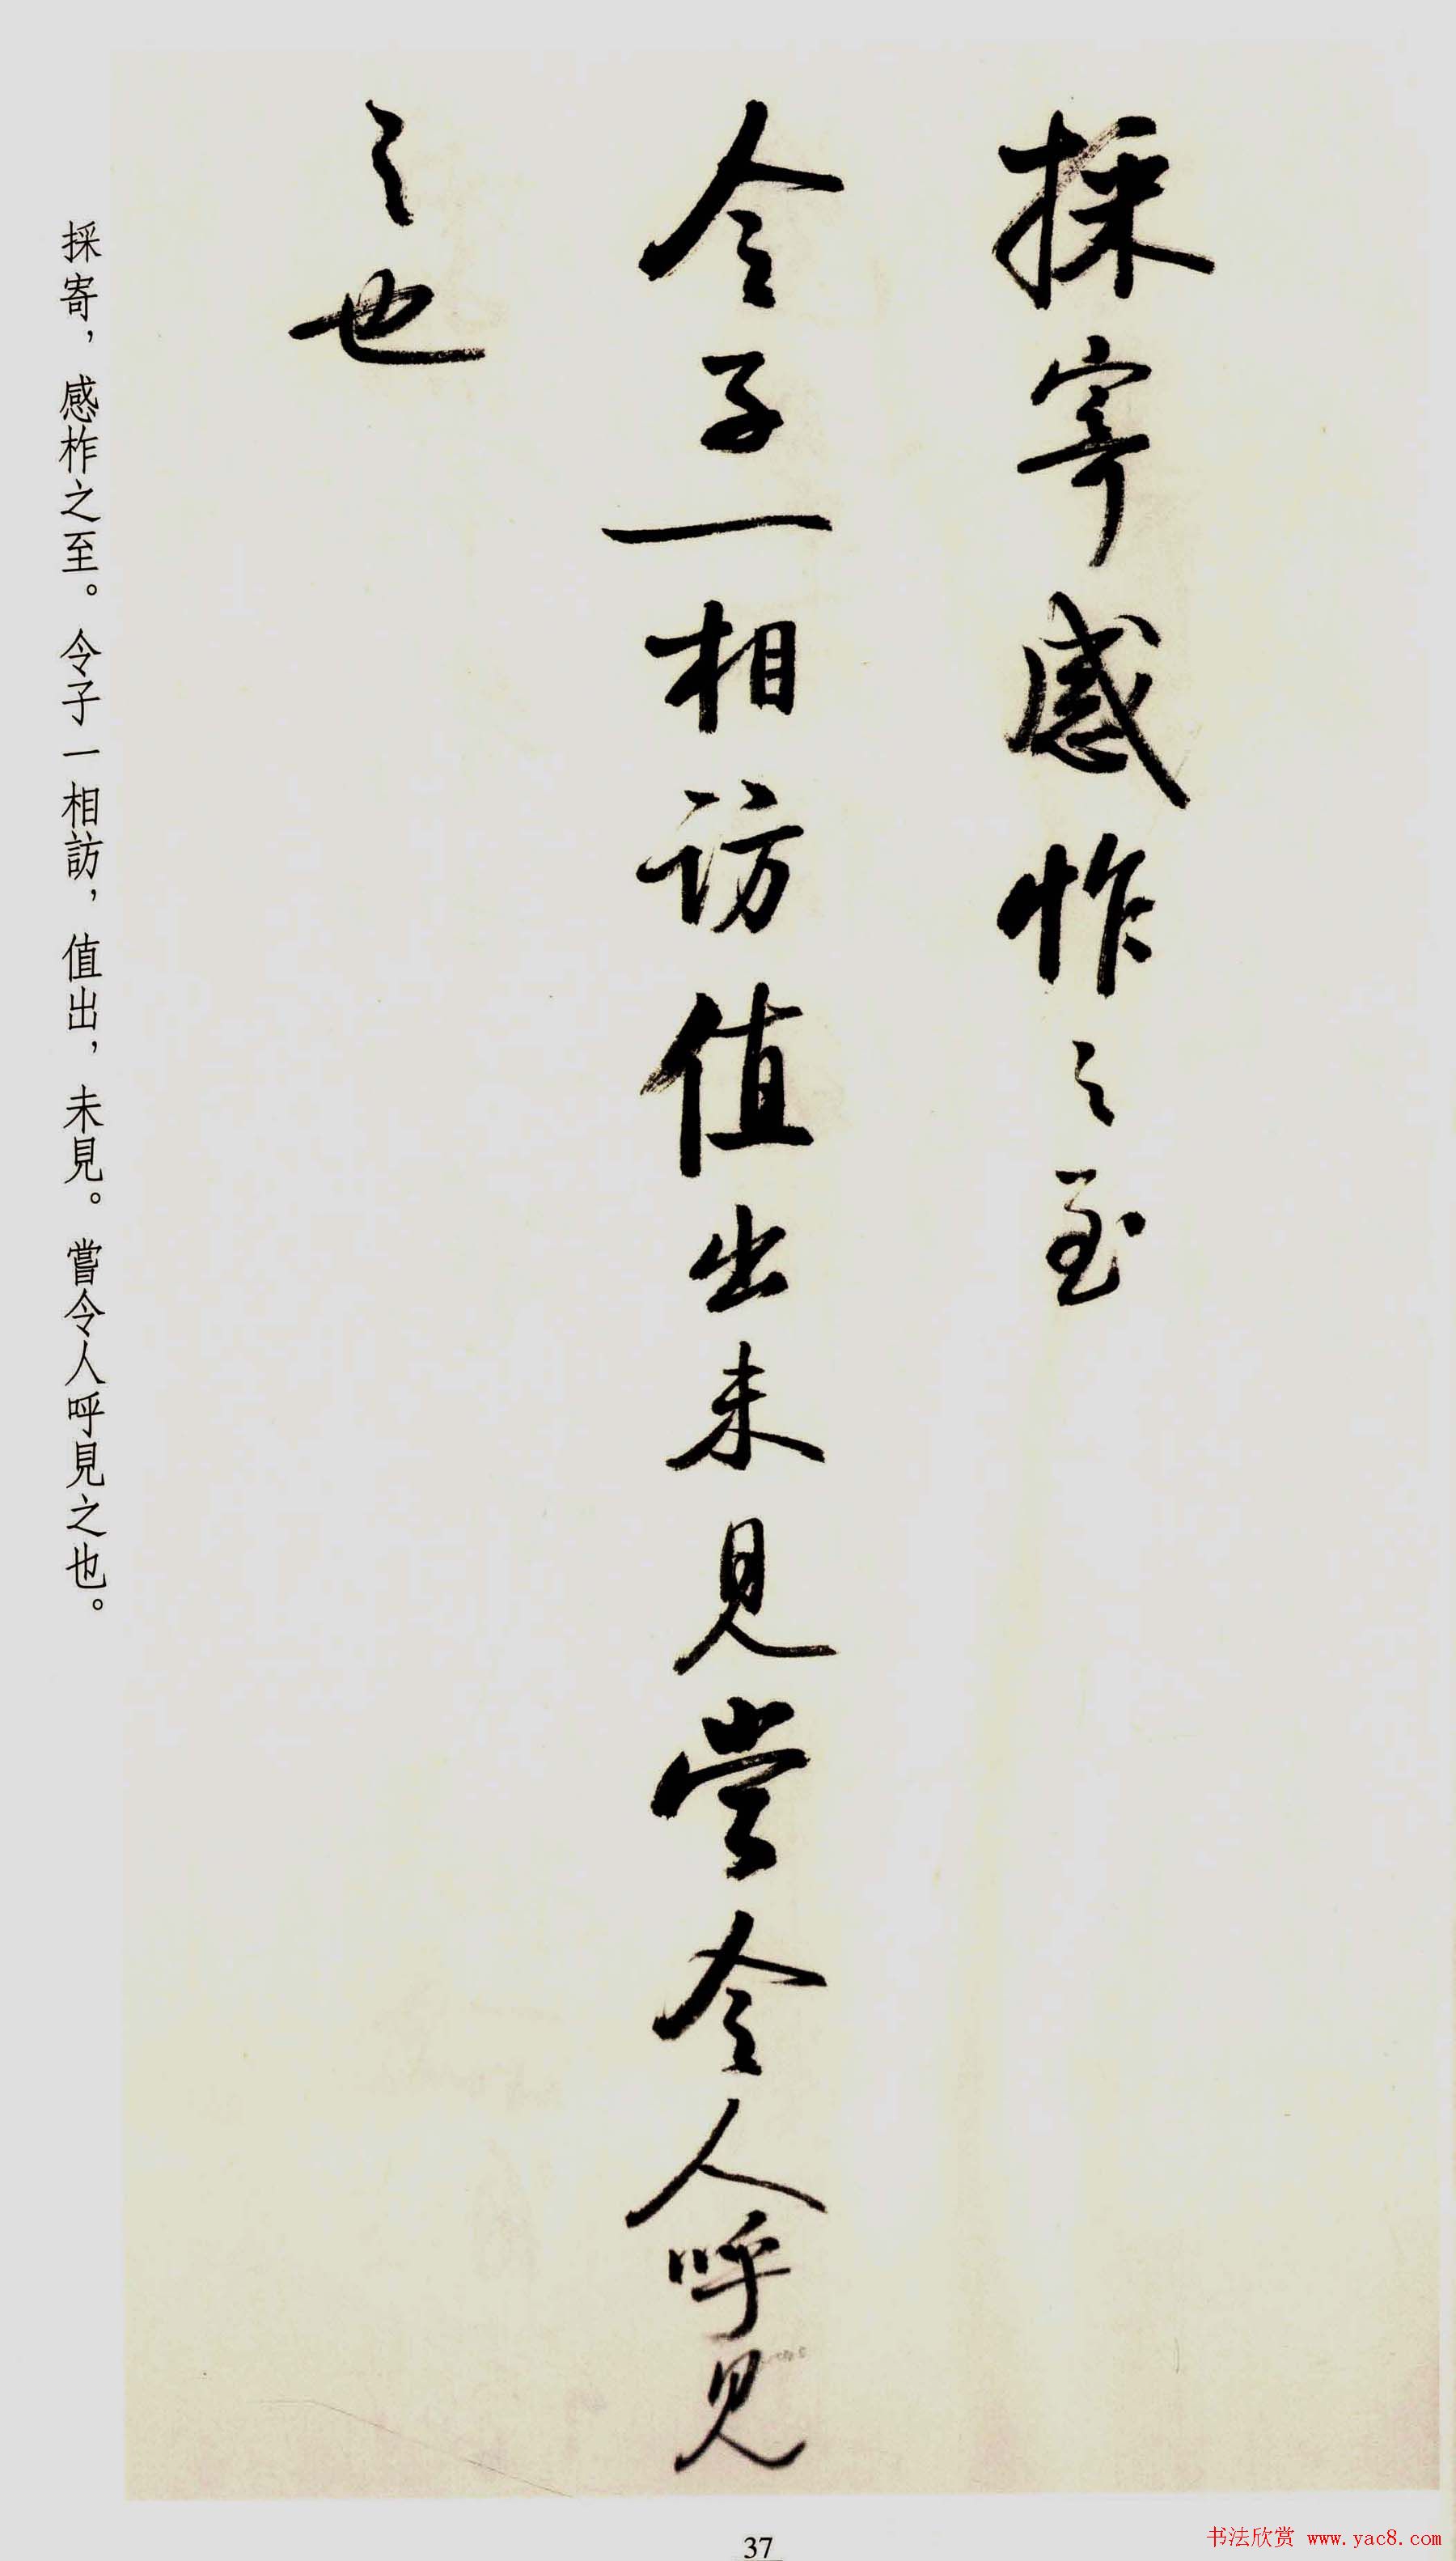 採寄感怍之至
令子一相访值出未見尝令人呼見
之也
採寄，感柞之至。令子一相訪，值出，未見。嘗令人呼見之也。
37
书法欣赏 www.yac8.com